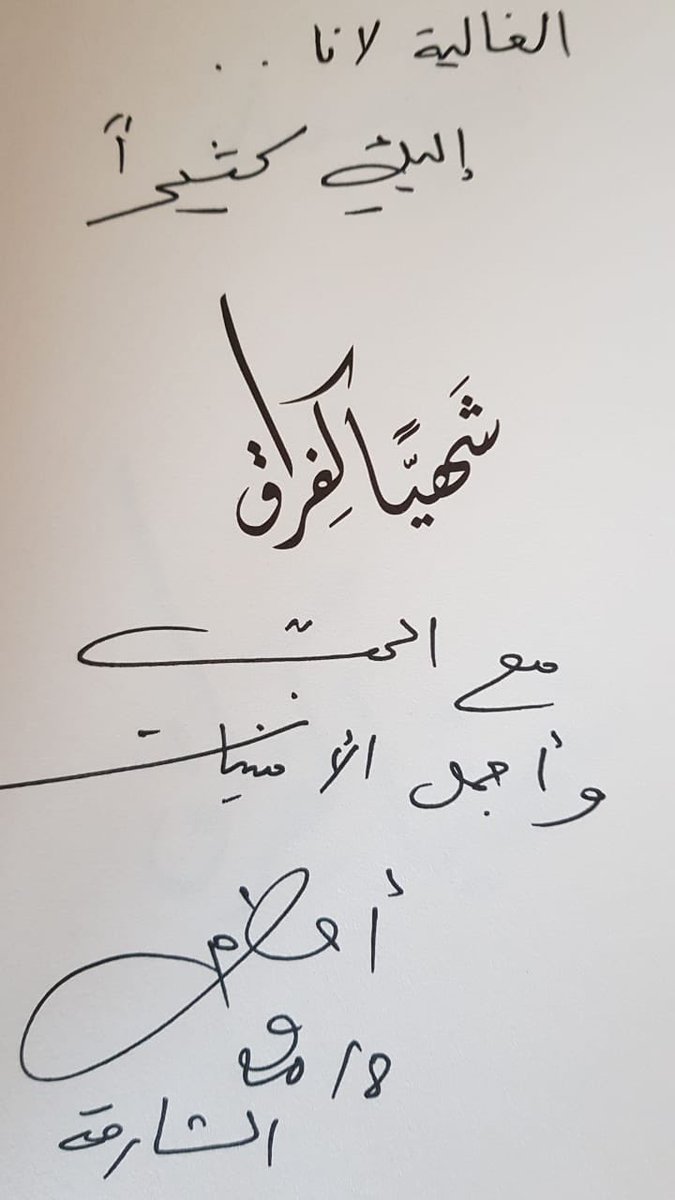 الغالية لانا . .
إليكِ كثيراً
شَهيًّا كفِراق
مع الحب
وأجمل الأمنيات
أحلام
الشارقة